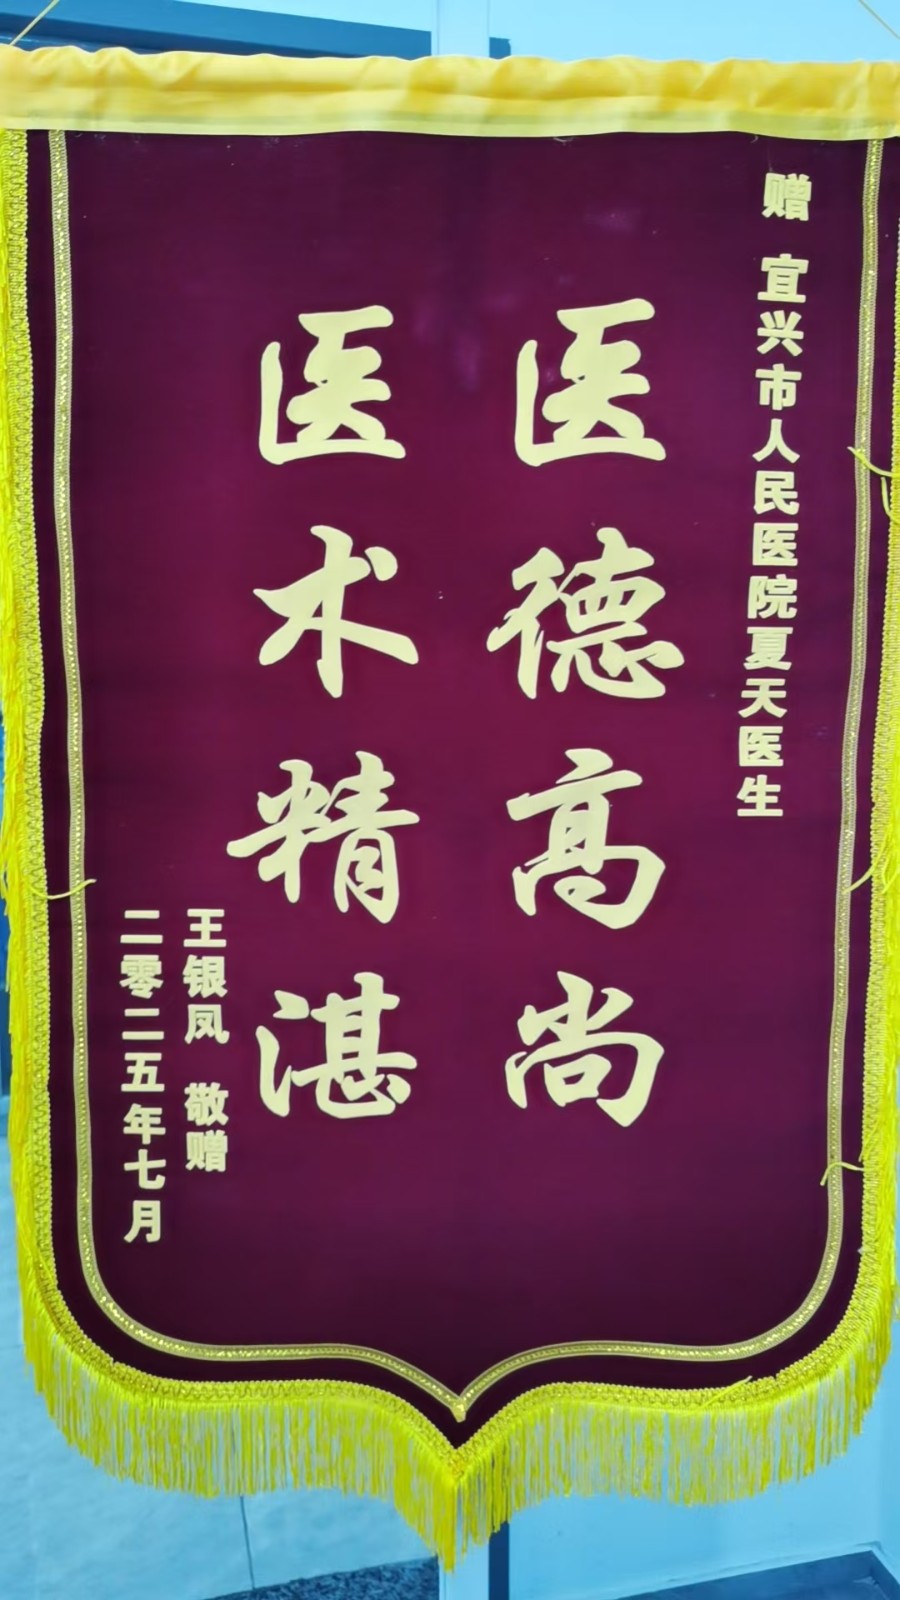 赠 宜兴市人民医院夏天医生
医德高尚
医术精湛
王银凤 敬赠
二零二五年七月